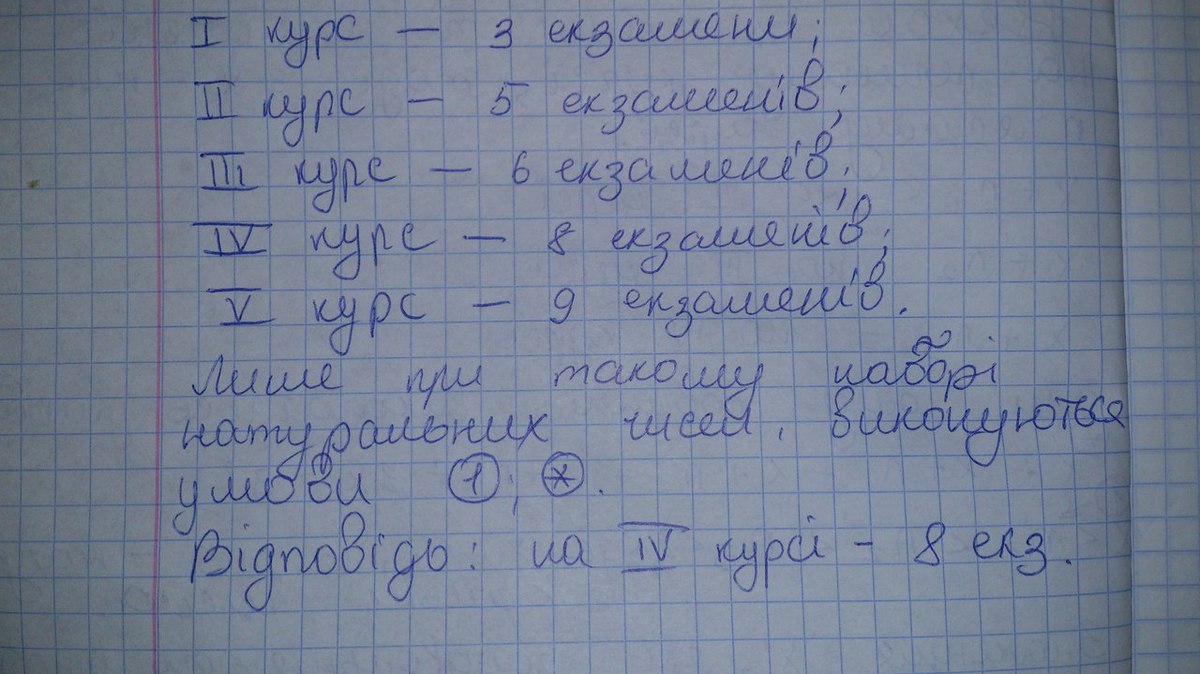 I курс — 3 екзамени;
II курс — 5 екзаменів;
III курс — 6 екзаменів;
IV курс — 8 екзаменів;
V курс — 9 екзаменів.
Лише при такому наборі
натуральних чисел, виконуються
умови ①; ⊛.
Відповідь: на IV курсі - 8 екз.